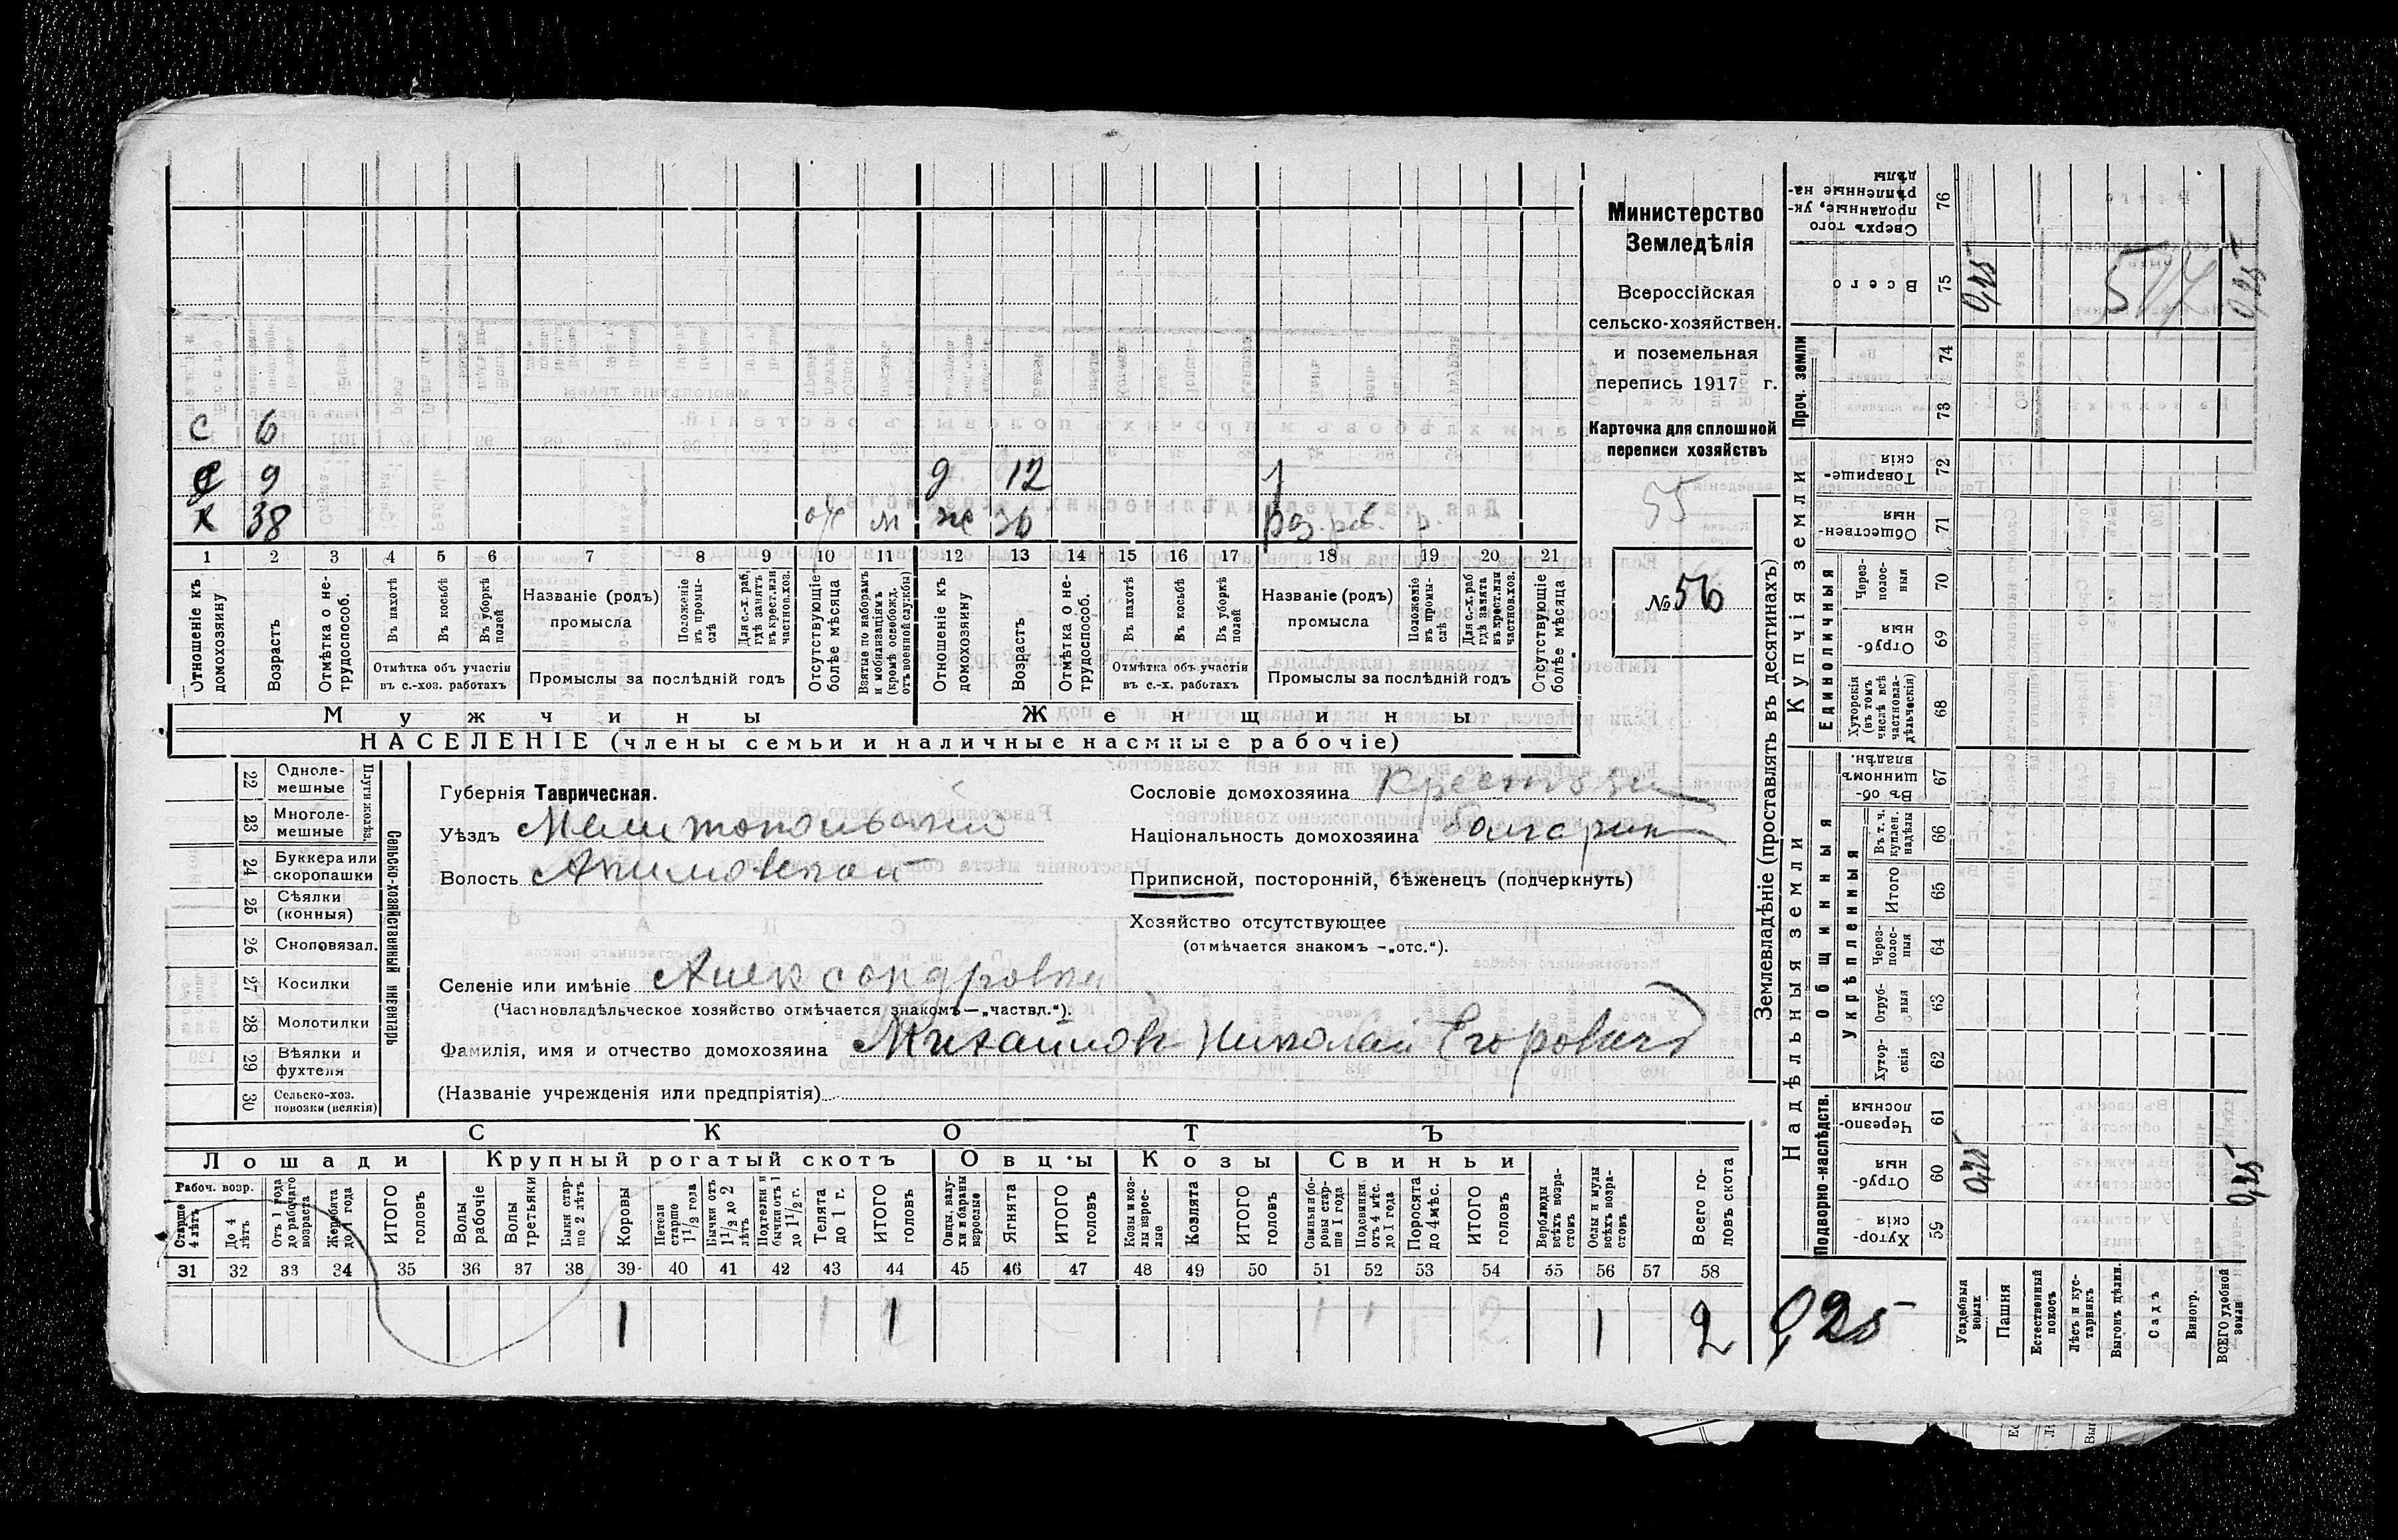 Министерство
Земледѣлія
Всероссійская
сельско-хозяйствен.
и поземельная
перепись 1917 г.
Карточка для сплошной
переписи хозяйствъ
55
№ 56
с 6
с 9 д 12
х 38 от м ж 36
1 2 3 4 5 6 7 8 9 10 11 12 13 14 15 16 17 18 19 20 21
Отношеніе къ домохозяину
Возрастъ
Отмѣтка о нетрудоспособ.
Въ пахотѣ
Въ косьбѣ
Въ уборкѣ полей
Отмѣтка объ участіи въ с.-хоз. работахъ
Названіе (родъ) промысла
Положеніе въ промыслѣ
Для с.-х. раб, гдѣ занятъ въ крест. или частнов. хоз.
Промыслы за послѣдній годъ
Отсутствующіе болѣе мѣсяца
Взятые по наборамъ и мобилизаціямъ (кромѣ освобожд. отъ военной службы)
Отношеніе къ домохозяину
Возрастъ
Отмѣтка о нетрудоспособ.
Въ пахотѣ
Въ косьбѣ
Въ уборкѣ полей
Отмѣтка объ участіи въ с.-х. работахъ
Названіе (родъ) промысла
Положеніе въ промыслѣ
Для с.-х. раб гдѣ занята въ крест. или частнов. хоз.
Промыслы за послѣдній годъ
Отсутствующіе болѣе мѣсяца
Мужчины Женщины
НАСЕЛЕНІЕ (члены семьи и наличные наемные рабочіе)
Сельско-хозяйственный инвентарь
22 Одноле-мешные
23 Многоле-мешные
24 Буккера или скоропашки
25 Сѣялки (конныя)
26 Сноповязал.
27 Косилки
28 Молотилки
29 Вѣялки и фухтеля
30 Сельско-хоз. повозки (всякія)
Губернія Таврическая.
Уѣздъ Мелитопольский
Волость Акимовской
Сословіе домохозяина Крестьян
Національность домохозяина болгарин
Приписной, посторонній, бѣженецъ (подчеркнуть)
Хозяйство отсутствующее
(отмѣчается знакомъ —„отс.“).
Селеніе или имѣніе Александровка
(Частновладѣльческое хозяйство отмѣчается знакомъ—„частвл.“).
Фамилія, имя и отчество домохозяина Михайловъ Николай Егорович
(Названіе учрежденія или предпріятія)
СКОТЪ
Лошади Крупный рогатый скотъ Овцы Козы Свиньи
Рабоч. возр.
Старше 4 лѣтъ
До 4 лѣтъ
Отъ 1 года до рабочаго возраста
Жеребята до 1 года
ИТОГО головъ
Волы рабочіе
Волы третьяки
Быки старше 2 лѣтъ
Коровы
Нетели старше 1½ года
Бычки отъ 1½ до 2 лѣтъ
Подтелки и бычки отъ 1 до 1½ г.
Телята до 1 г.
ИТОГО головъ
Овцы, валухи и бараны взрослые
Ягнята
ИТОГО головъ
Козы и козлы взрослые
Козлята
ИТОГО головъ
Свиньи и боровы старше 1 года
Подсвинки отъ 4 мѣс. до 1 года
Поросята до 4 мѣс.
ИТОГО головъ
Верблюды всѣхъ возрастовъ
Ослы и мулы всѣхъ возрастовъ
Всего головъ скота
31 32 33 34 35 36 37 38 39 40 41 42 43 44 45 46 47 48 49 50 51 52 53 54 55 56 57 58
1 1 1 2
0,25
Землевладѣніе (проставлять въ десятинахъ)
Надѣльныя земли
Купчія земли
Проч. земли
Подворно-наслѣдств.
Общинныя
Укрѣпленныя
Единоличныя
Сверхъ того проданные, укрѣпленные надѣлы 76
Всего 75 0,25 0,25
517
74
73
Товарищескія 72
Общественныя 71
Через-полосныя 70
Отрубныя 69
Хуторскія (въ томъ числѣ всѣ частновладѣльческія) 68
Въ общинномъ владѣн. 67
Въ т. ч. куплен. надѣлы 66
Итого 65
Через-полосныя 64
Отрубныя 63
Хуторскія 62
Черезполосныя 61
Отрубныя 60 0,25 0,25
Хуторскія 59
Усадебныя земли
Пашня
Естественный покосъ
Лѣсъ и кустарникъ
Выгонъ дѣлин.
Садъ
Виногр.
ВСЕГО удобной земли